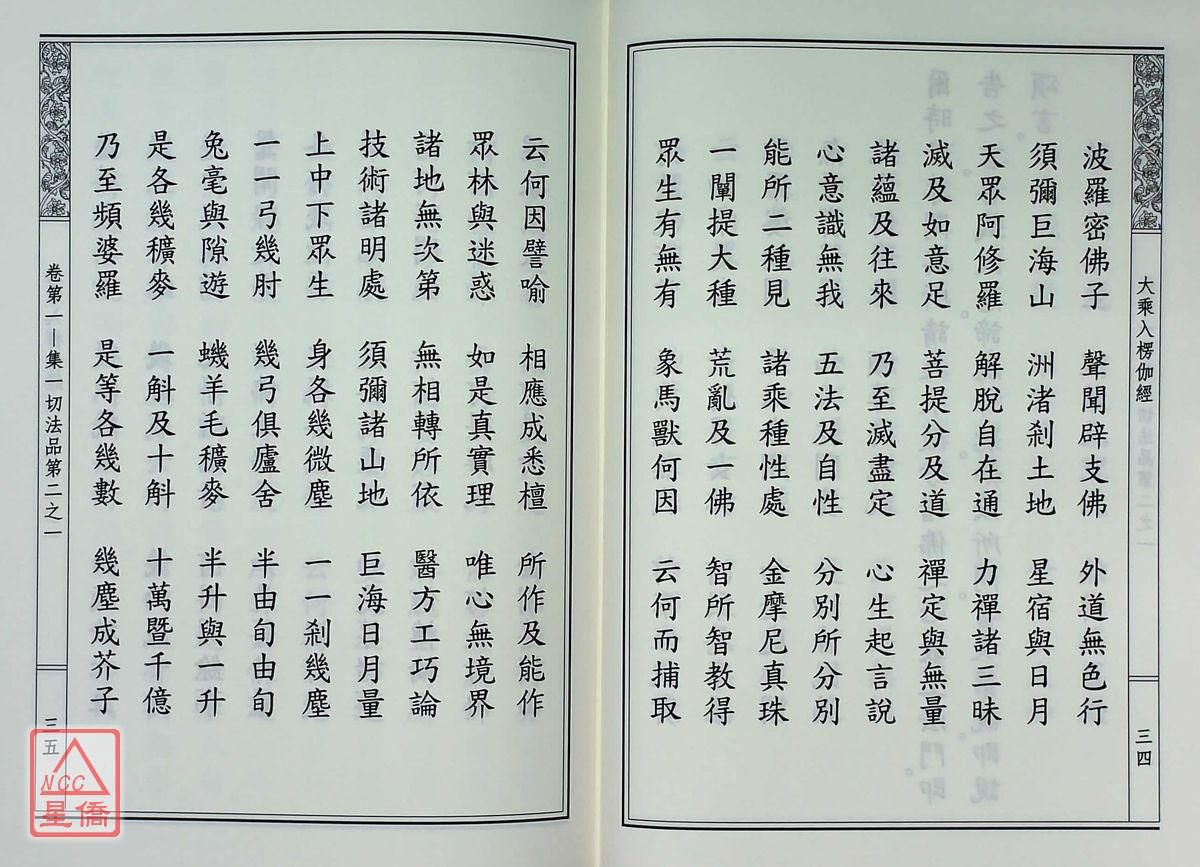 大乘入楞伽經
三四
波羅密佛子 聲聞辟支佛 外道無色行
須彌巨海山 洲渚剎土地 星宿與日月
天眾阿修羅 解脫自在通 力禪諸三昧
滅及如意足 菩提分及道 禪定與無量
諸蘊及往來 乃至滅盡定 心生起言說
心意識無我 五法及自性 分別所分別
能所二種見 諸乘種性處 金摩尼真珠
一闡提大種 荒亂及一佛 智所智教得
眾生有無有 象馬獸何因 云何而捕取
云何因譬喻 相應成悉檀 所作及能作
眾林與迷惑 如是真實理 唯心無境界
諸地無次第 無相轉所依 醫方工巧論
技術諸明處 須彌諸山地 巨海日月量
上中下眾生 身各幾微塵 一一剎幾塵
一一弓幾肘 幾弓俱廬舍 半由旬由旬
兔毫與隙遊 蟣羊毛穬麥 半升與一升
是各幾穬麥 一斛及十斛 十萬暨千億
乃至頻婆羅 是等各幾數 幾塵成芥子
卷第一—集一切法品第二之一
三五
NCC
星僑